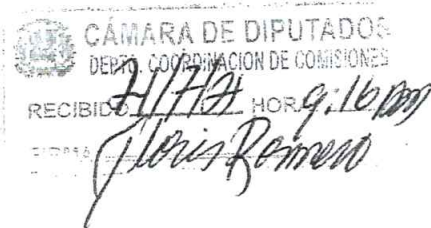 CÁMARA DE DIPUTADOS
DEPTO. COORDINACION DE COMISIONES
RECIBIDO 21/7/21 HORA 9:16 pm
FIRMA
Floris Romero